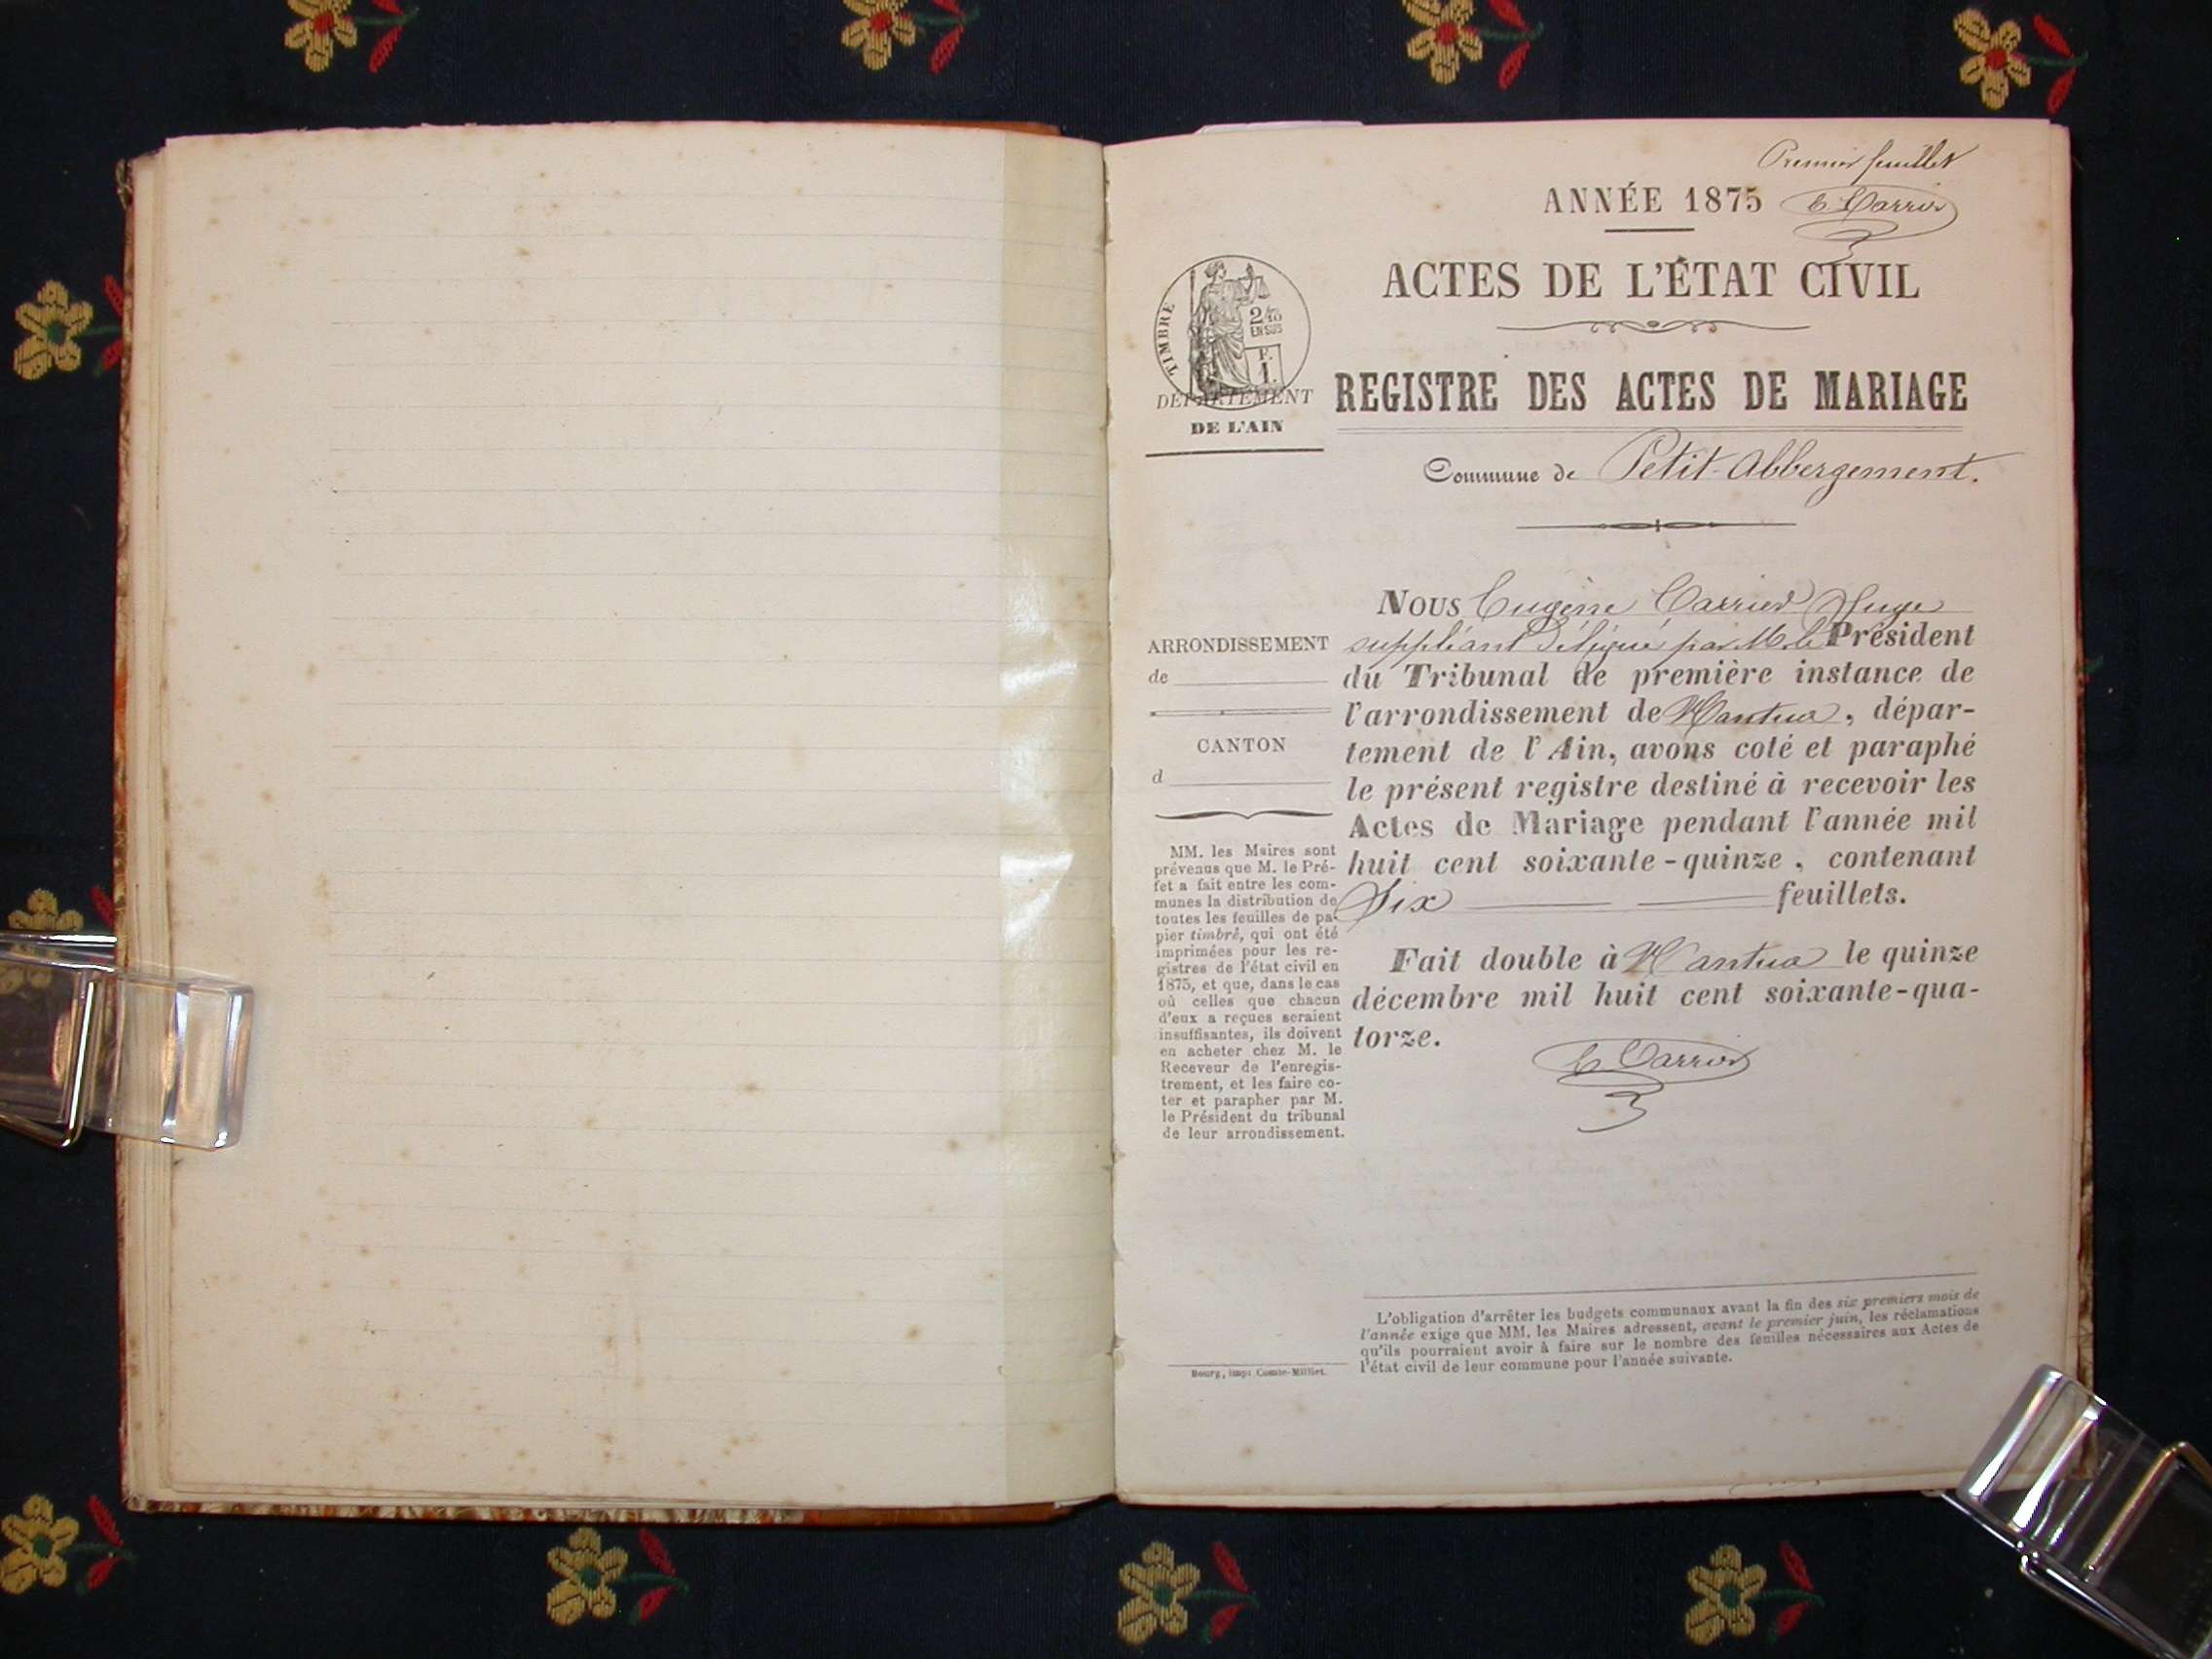 Premier feuillet
ANNÉE 1875
E. Carrier
ACTES DE L'ÉTAT CIVIL
TIMBRE
2/10
EN SUS
F.
1.
DÉPARTEMENT
DE L'AIN
REGISTRE DES ACTES DE MARIAGE
Commune de Petit-Abbergement.
ARRONDISSEMENT
de
CANTON
d
MM. les Maires sont
prévenus que M. le Pré-
fet a fait entre les com-
munes la distribution de
toutes les feuilles de pa-
pier timbré, qui ont été
imprimées pour les re-
gistres de l'état civil en
1875, et que, dans le cas
où celles que chacun
d'eux a reçues seraient
insuffisantes, ils doivent
en acheter chez M. le
Receveur de l'enregis-
trement, et les faire co-
ter et parapher par M.
le Président du tribunal
de leur arrondissement.
NOUS Eugène Carrier Juge
suppléant délégué par M. le Président
du Tribunal de première instance de
l'arrondissement de Nantua, dépar-
tement de l'Ain, avons coté et paraphé
le présent registre destiné à recevoir les
Actes de Mariage pendant l'année mil
huit cent soixante-quinze, contenant
Six feuillets.
Fait double à Nantua le quinze
décembre mil huit cent soixante-qua-
torze.
E. Carrier
L'obligation d'arrêter les budgets communaux avant la fin des six premiers mois de
l'année exige que MM. les Maires adressent, avant le premier juin, les réclamations
qu'ils pourraient avoir à faire sur le nombre des feuilles nécessaires aux Actes de
l'état civil de leur commune pour l'année suivante.
Bourg, imp. Comte-Milliet.